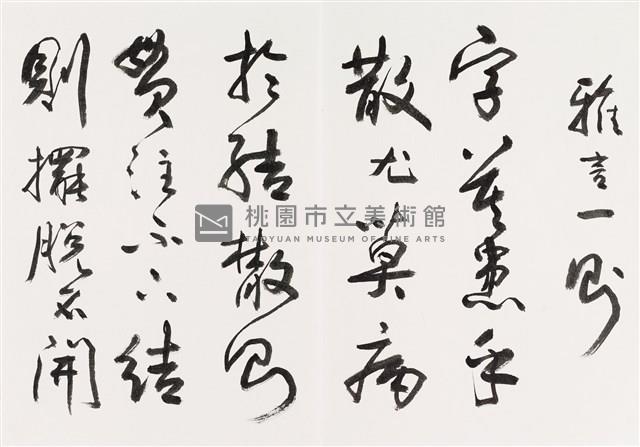 雅言一則
字莫患乎
散尤莫病
於結散則
貫注不下結
則擺脫不開
桃園市立美術館
TAOYUAN MUSEUM OF FINE ARTS